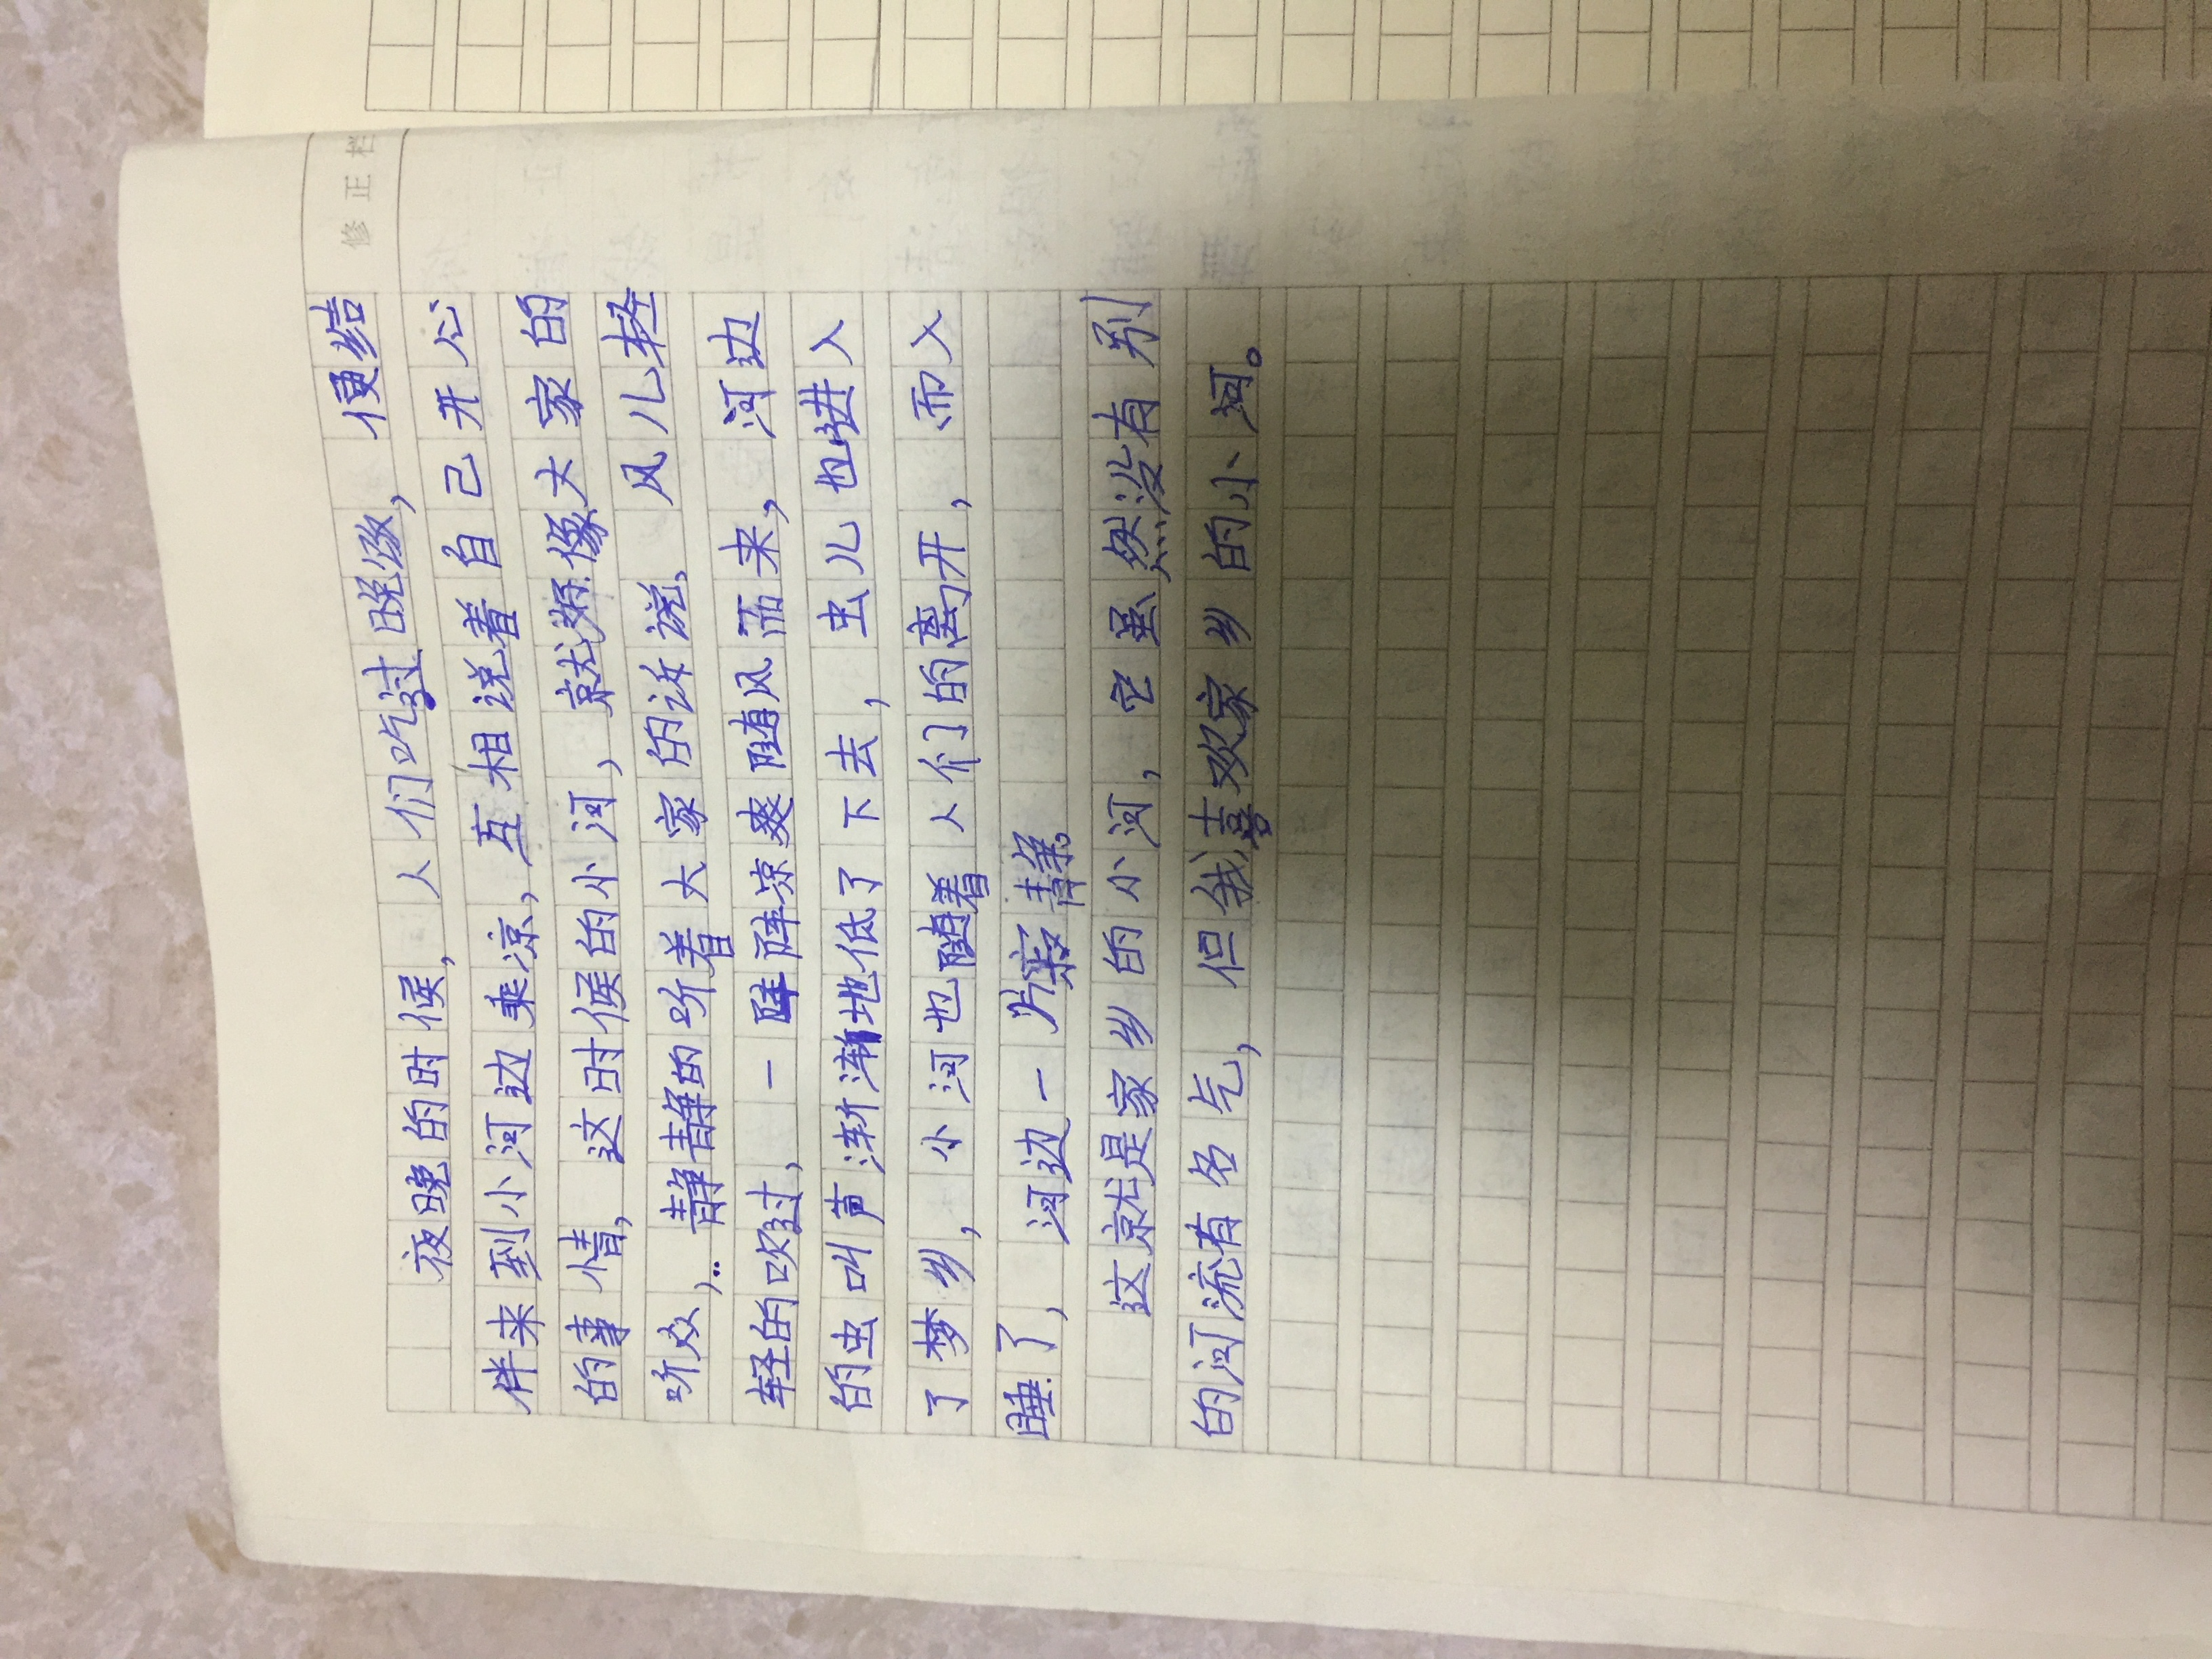 修正栏
夜晚的时候，人们吃过晚饭，便结
伴来到小河边乘凉，互相说着自己开心
的事情，这时候的小河，就好像大家的
听众，静静的听着大家的诉说，风儿轻
轻的吹过，一阵阵凉爽随风而来，河边
的虫叫声渐渐地低了下去，虫儿也进入
了梦乡，小河也随着人们的离开，而入
睡了，河边一片寂静。
这就是家乡的小河，它虽然没有别
的河流有名气，但我喜欢家乡的小河。